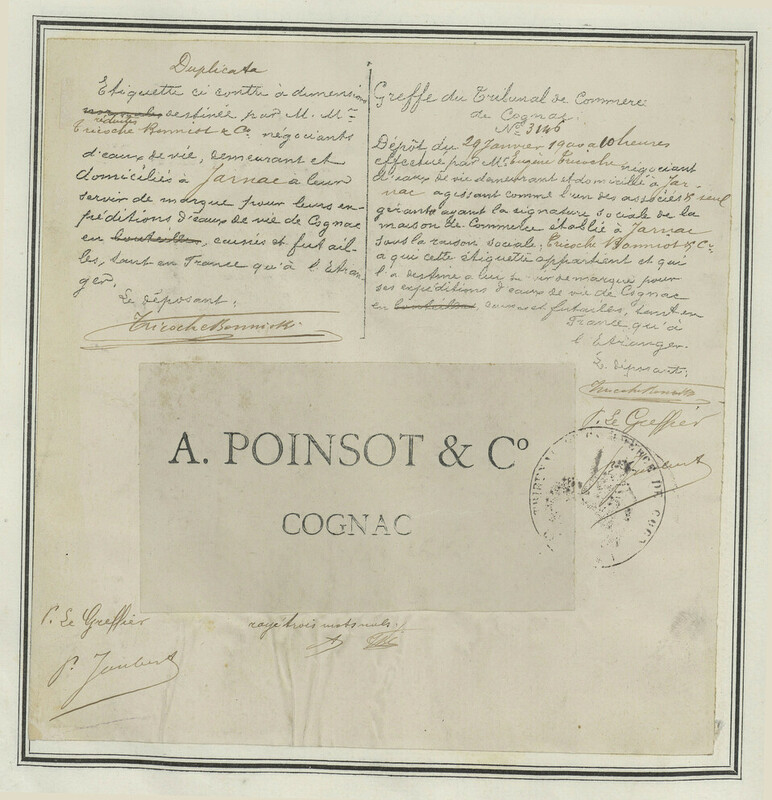 Duplicata
Etiquette ci contre à dimensions
réduites destinée par M. Mrs
Tricoche Bonniot & Co, négociants
d'eaux de vie, demeurant et
domiciliés à Jarnac à leur
servir de marque pour leurs ex-
péditions d'eaux de vie de Cognac
en bouteilles, caisses et futail-
les, tant en France qu'à l'Etran-
ger.
Le déposant:
Tricoche Bonniot & Co
Greffe du Tribunal de Commerce
de Cognac.
No 3146
Dépôt du 29 Janvier 1900 à 10 heures
effectué par M. Eugène Tricoche négociant
d'eaux de vie demeurant et domicilié à Jar-
nac agissant comme l'un des associés & seul
gérant ayant la signature sociale de la
maison de Commerce établie à Jarnac
sous la raison sociale: Tricoche Bonniot & Co
à qui cette étiquette appartient et qui
l'a destine à lui de marque pour
ses expéditions d'eaux de vie de Cognac
en bouteilles, caisses et futailles, tant en
France qu'à
l'Etranger.
Le déposant:
Tricoche Bonniot & Co
P. Le Greffier
Jaubert
A. POINSOT & Co
COGNAC
TRIBUNAL DE COMMERCE DE COGNAC
P. Le Greffier
rayé trois mots nuls.
P. Jaubert